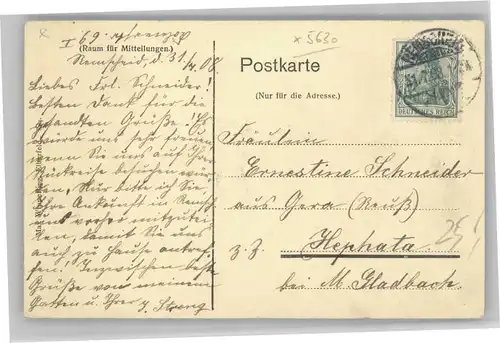 x
x 5630
I
(Raum für Mitteilungen.)
Remscheid, d. 31/ 08.
Liebes Frl. Schneider!
Besten Dank für die
gesandten Grüße! Es
würde uns sehr freuen,
wenn Sie uns auf Ihrer
Rückreise besuchen wür-
den. Nur bitte ich Sie,
Ihre Ankunft in Remsch
uns vorher mitzutei-
len, damit Sie uns
auch zu Hause antref-
fen! Inzwischen beste
Grüße von meinem
Gatten u. Ihrer
Postkarte
(Nur für die Adresse.)
DEUTSCHES REICH
Fräulein
Ernestine Schneider
aus Gera (Reuß)
z. Z. Hephata
bei M. Gladbach.
25!